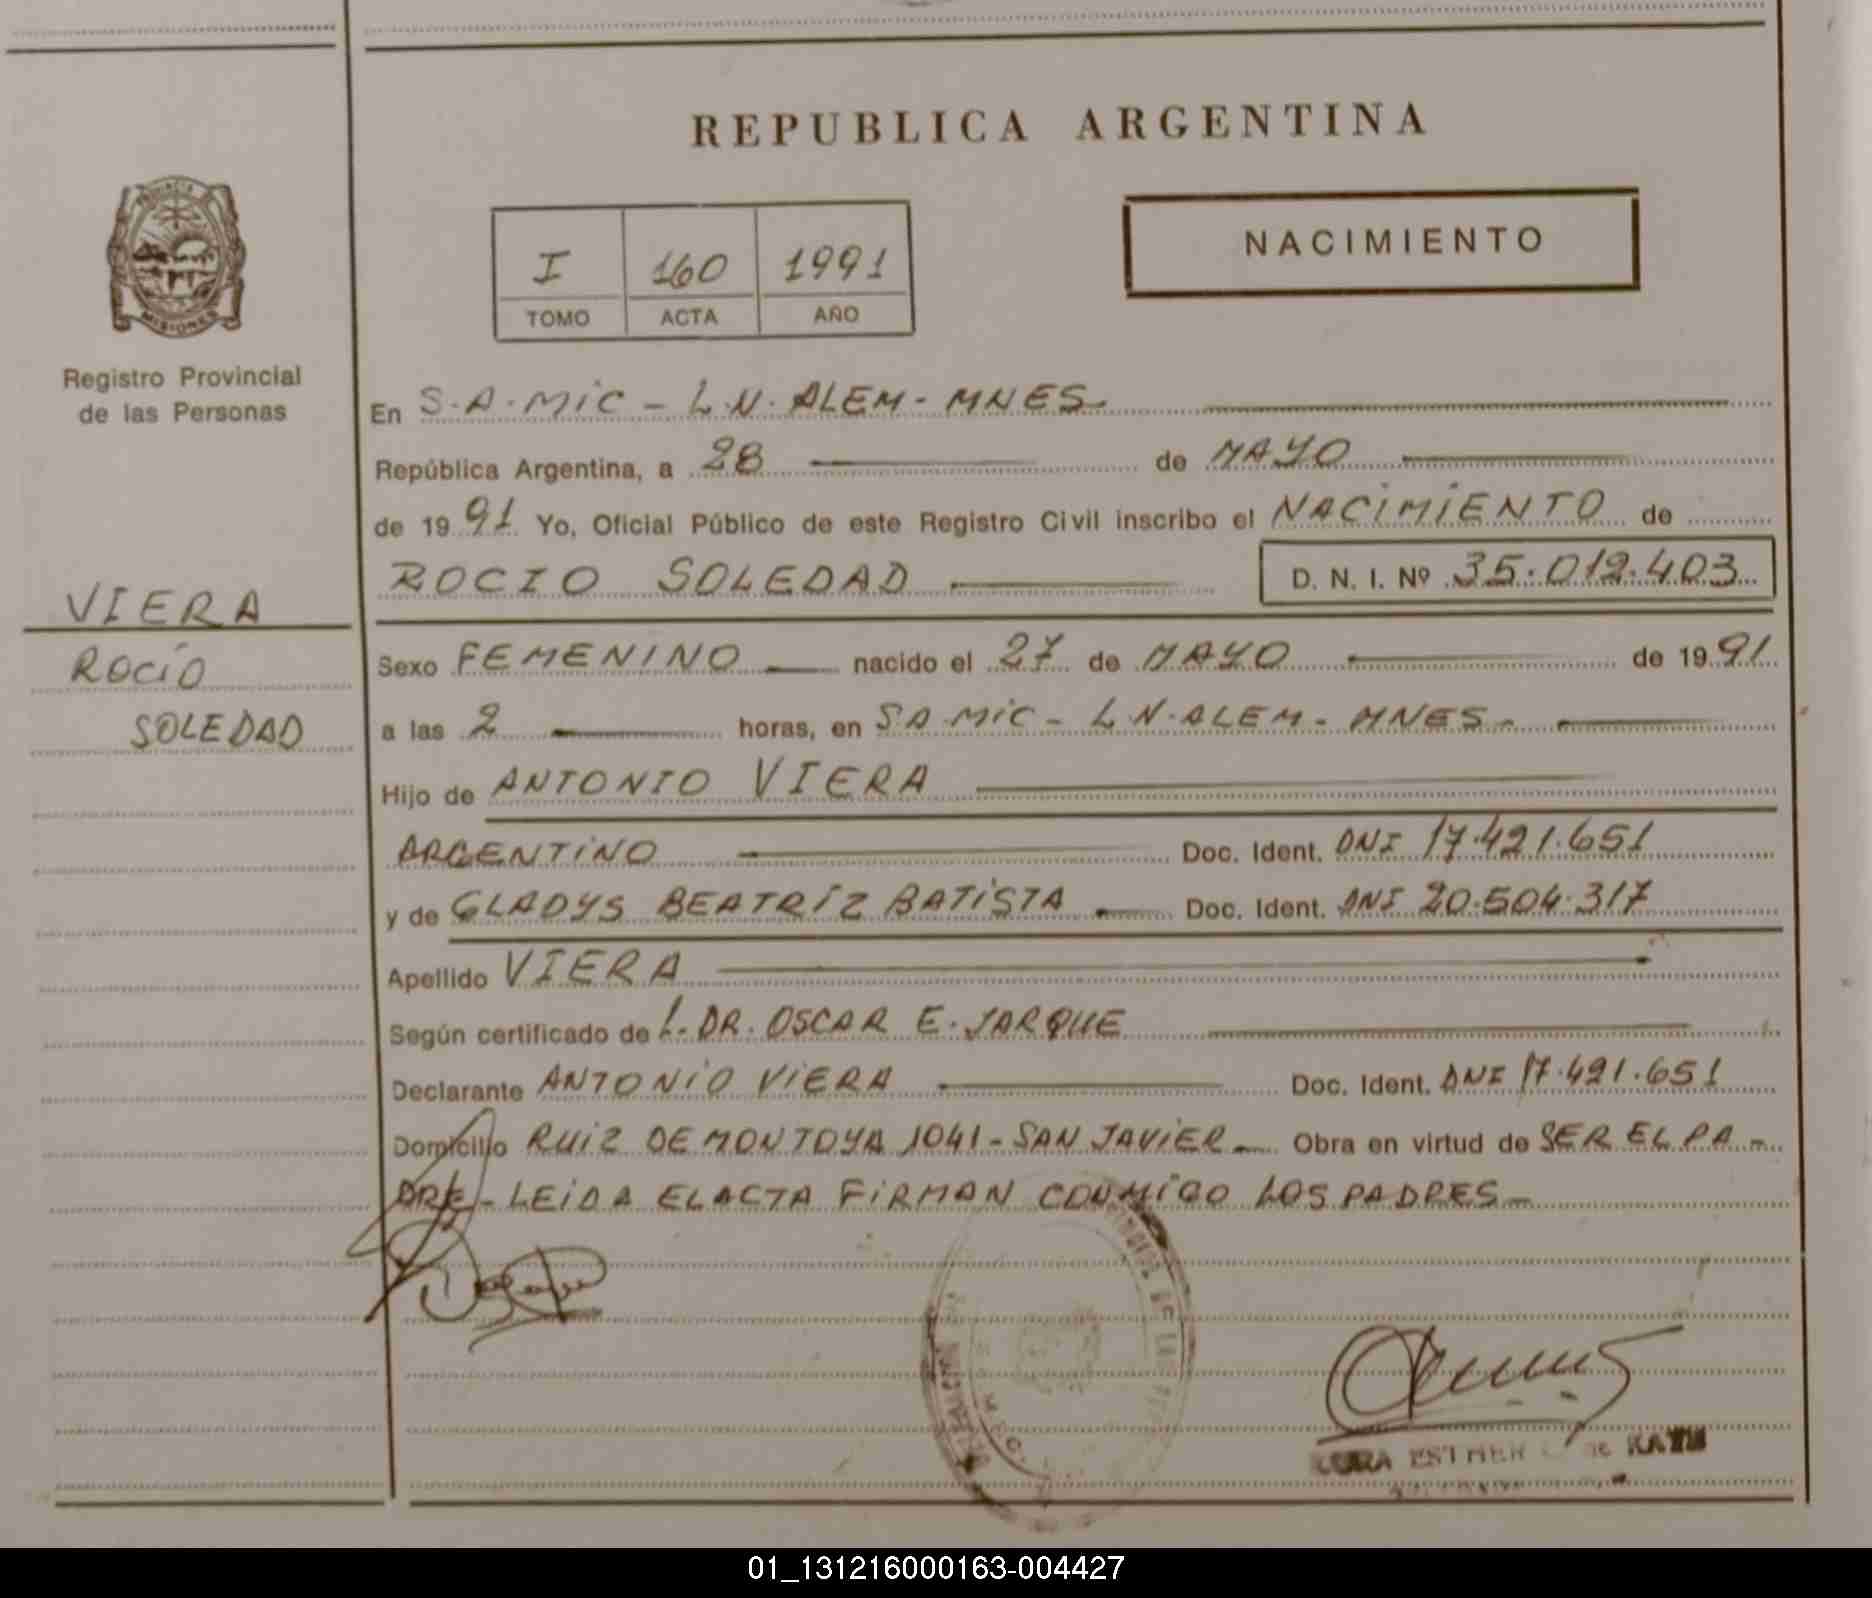 REPUBLICA ARGENTINA
I 160 1991
TOMO ACTA AÑO
NACIMIENTO
MISIONES
Registro Provincial
de las Personas
VIERA
ROCÍO
SOLEDAD
En S.A.MiC - L.N. ALEM - MNES.
República Argentina, a 28 de MAYO
de 1991 Yo, Oficial Público de este Registro Civil inscribo el NACIMIENTO de
ROCIO SOLEDAD D. N. I. Nº 35.012.403
Sexo FEMENINO nacido el 27 de MAYO de 1991
a las 2 horas, en S.A.MiC - L.N. ALEM - MNES -
Hijo de ANTONIO VIERA
ARGENTINO Doc. Ident. DNI 17.421.651
y de GLADYS BEATRIZ BATISTA Doc. Ident. DNI 20.504.317
Apellido VIERA
Según certificado de L. DR. OSCAR E. JARQUE
Declarante ANTONIO VIERA Doc. Ident. DNI 17.421.651
Domicilio RUIZ DE MONTOYA 1041 - SAN JAVIER - Obra en virtud de SER EL PA -
DRE - LEIDA EL ACTA FIRMAN CONMIGO LOS PADRES -
ESTHER DE KATZ
01_131216000163-004427